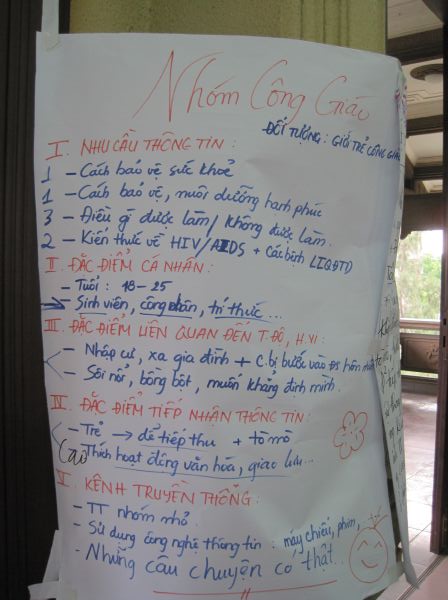 Nhóm Công Giáo
ĐỐI TƯỢNG : GIỚI TRẺ CÔNG GIÁO
I. NHU CẦU THÔNG TIN :
1 – Cách bảo vệ sức khoẻ
1 – Cách bảo vệ, nuôi dưỡng hạnh phúc
3 – Điều gì được làm / không được làm.
2 – Kiến thức về HIV/AIDS + các bệnh LTQĐTD
II. ĐẶC ĐIỂM CÁ NHÂN :
– Tuổi : 18 - 25
– Sinh viên, công nhân, trí thức ...
III. ĐẶC ĐIỂM LIÊN QUAN ĐẾN T.ĐỘ, H.VI :
– Nhập cư, xa gia đình + c.bị bước vào ĐS hôn nhân
– Sôi nổi, bồng bột, muốn khẳng định mình.
IV. ĐẶC ĐIỂM TIẾP NHẬN THÔNG TIN :
– Trẻ → dễ tiếp thu + tò mò
Thích hoạt động văn hóa, giao lưu...
V. KÊNH TRUYỀN THÔNG :
– TT nhóm nhỏ.
– Sử dụng công nghệ thông tin : máy chiếu, phim,
– Những câu chuyện có thật...